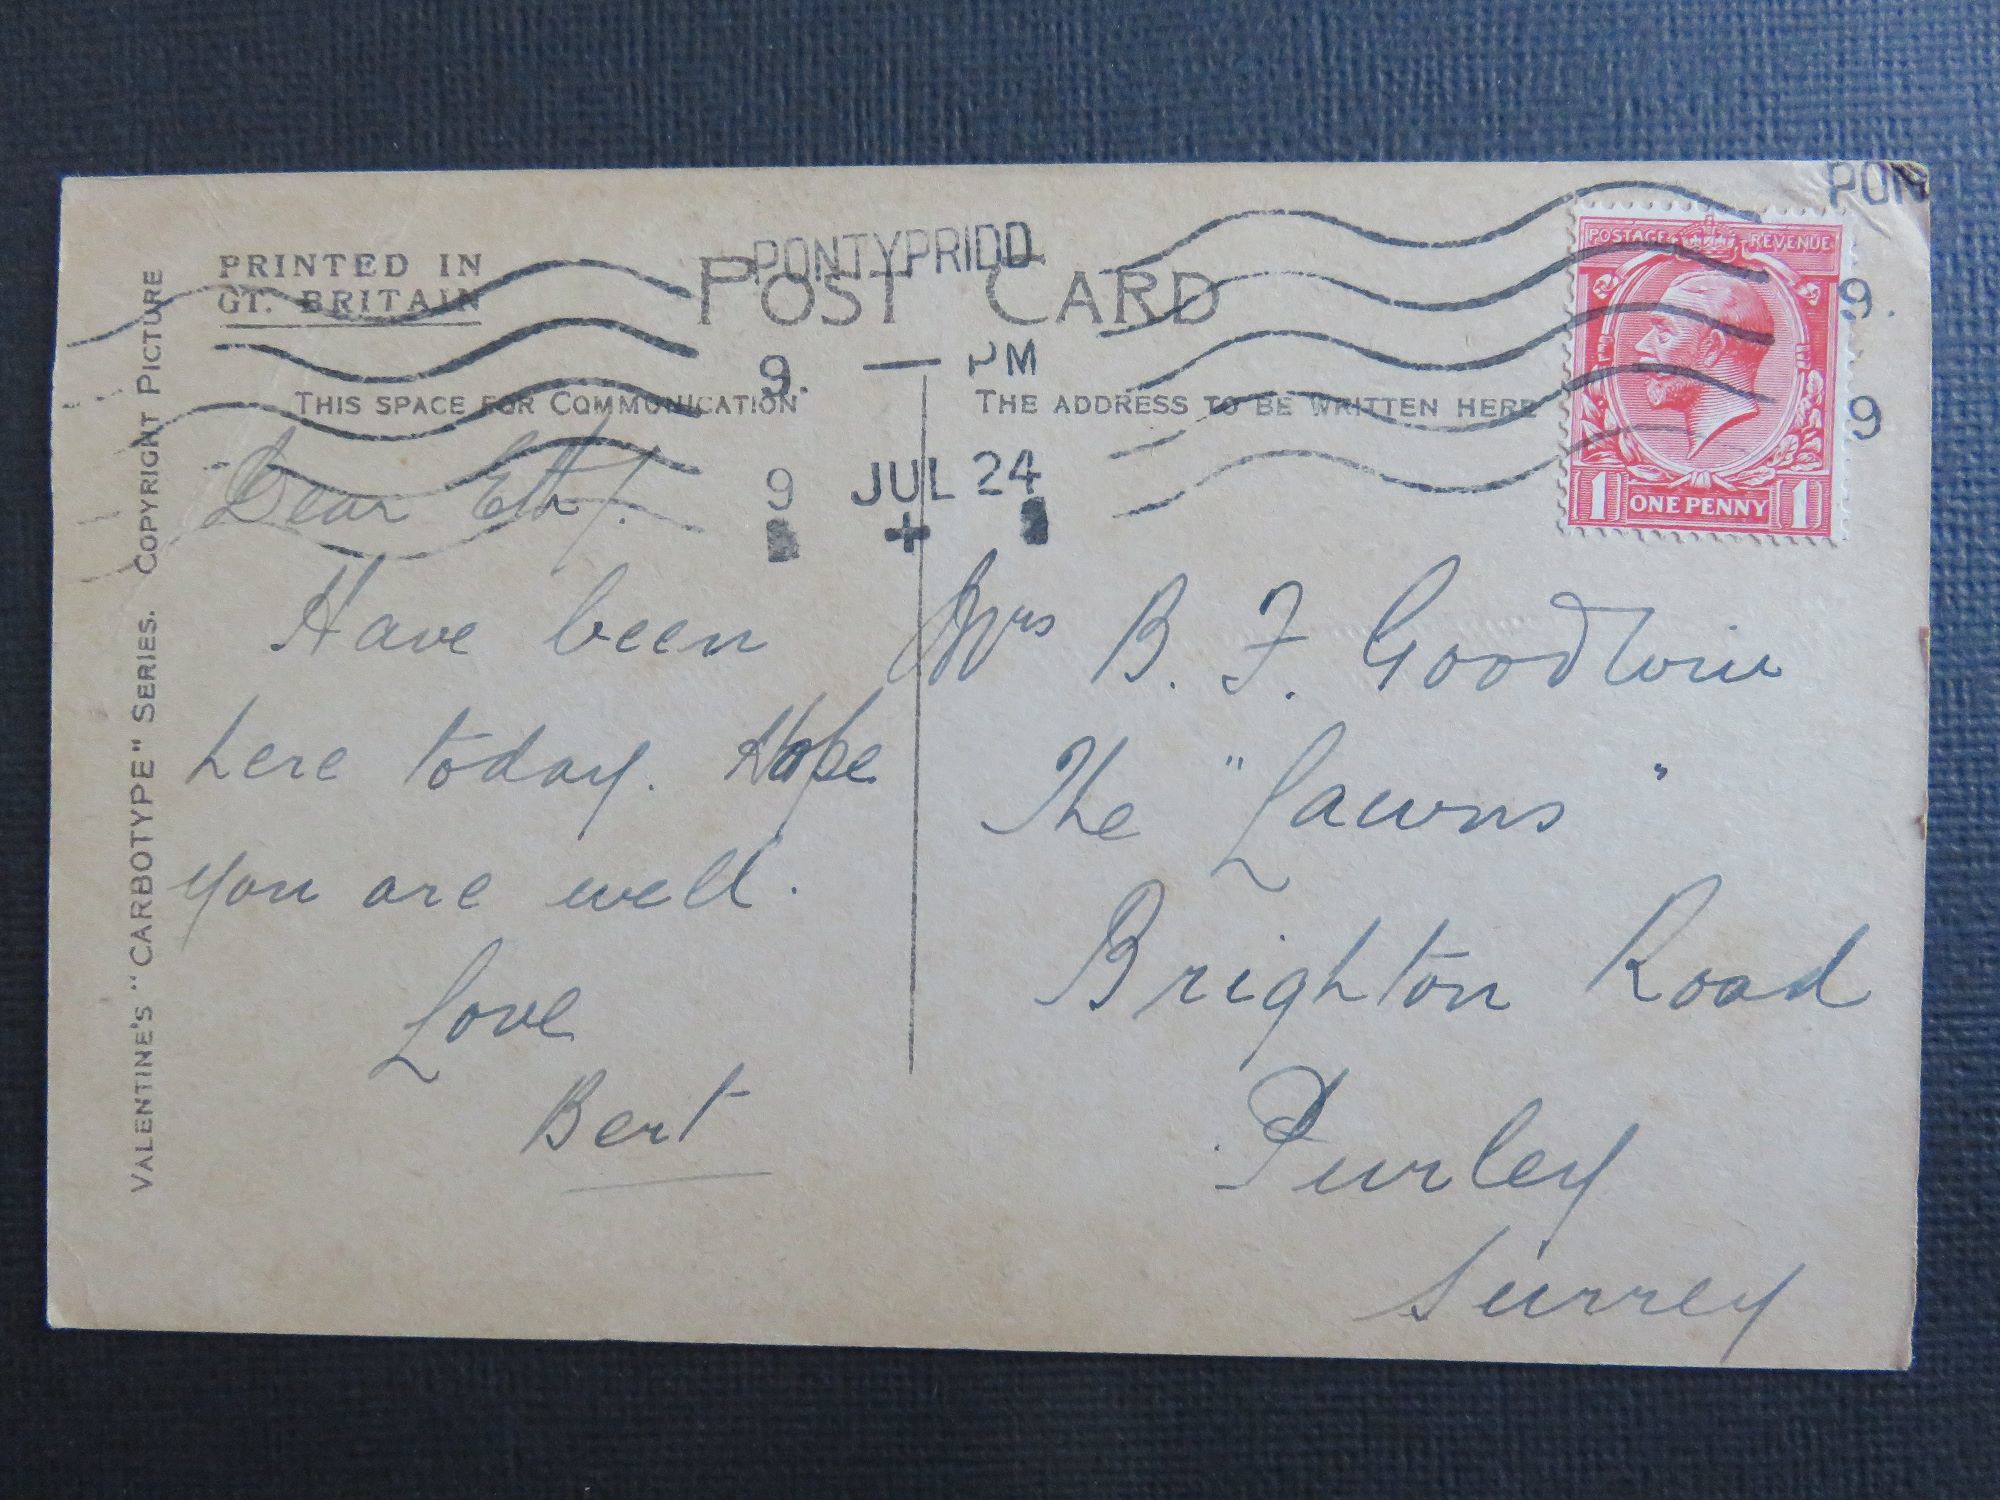 PRINTED IN
GT. BRITAIN
PONTYPRIDD
POST CARD
9. — PM
9 JUL 24
+
THIS SPACE FOR COMMUNICATION
THE ADDRESS TO BE WRITTEN HERE
POSTAGE REVENUE
1 ONE PENNY 1
PON
9.
9
VALENTINE'S "CARBOTYPE" SERIES. COPYRIGHT PICTURE
Dear Eth/.
Have been
here today. Hope
you are well.
Love
Bert
Mrs B. F. Goodwin
The "Lawns"
Brighton Road
Purley
Surrey